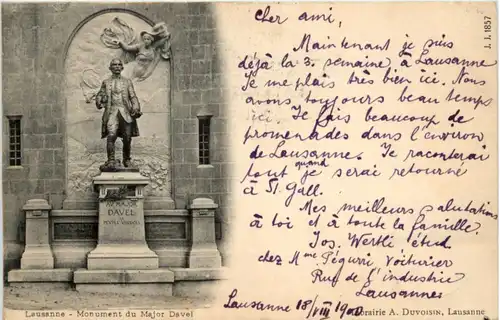 cher ami,
Maintenant je suis
déjà la 3. semaine à Lausanne
Je me plais très bien ici. Nous
avons toujours beau temps
ici. Je fais beaucoup de
promenades dans l'environ
de Lausanne. Je raconterai
tout quand je serai retourné
à St. Gall.
Mes meilleurs salutations
à toi et à toute la famille.
Jos. Wertli étud
chez Mme Péguiri Voiturier
Rue de l'industrie
Lausanne
Lausanne 18/VIII 1900
J. J. 1857
DAVEL
Lausanne - Monument du Major Davel
Librairie A. DUVOISIN, Lausanne